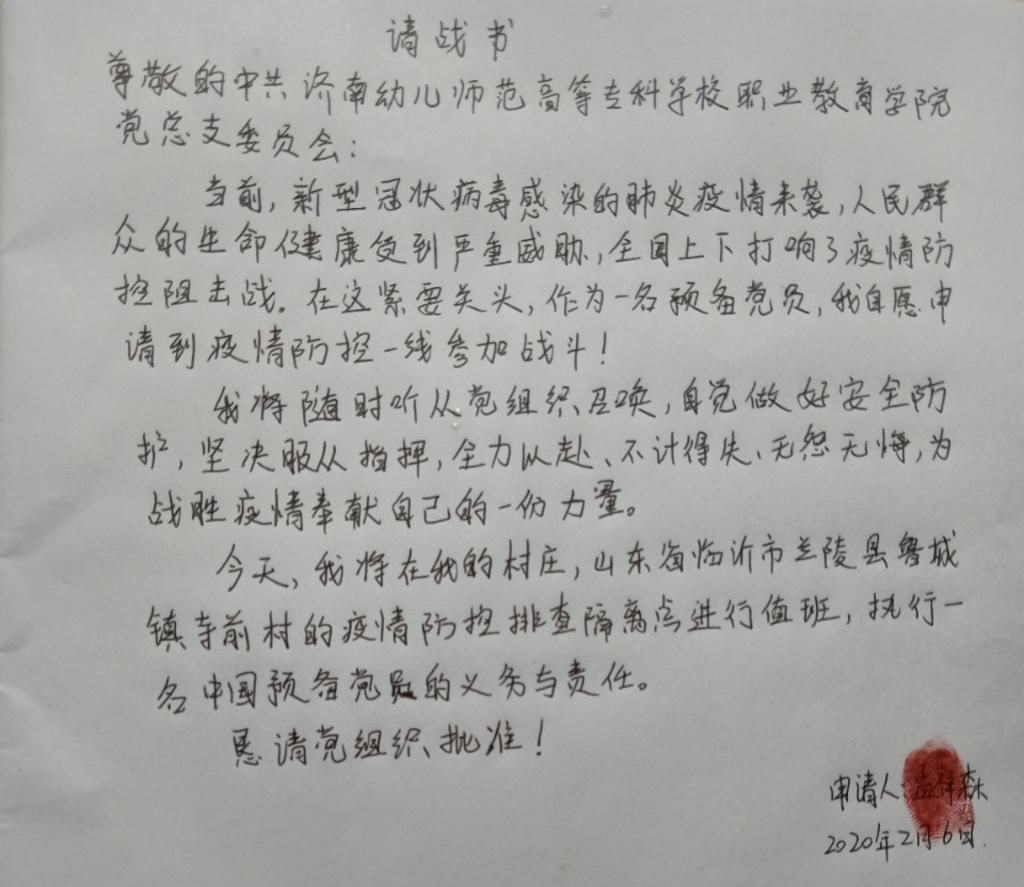 请战书
尊敬的中共济南幼儿师范高等专科学校职业教育学院
党总支委员会：
当前，新型冠状病毒感染的肺炎疫情来袭，人民群
众的生命健康受到严重威胁，全国上下打响了疫情防
控阻击战。在这紧要关头，作为一名预备党员，我自愿申
请到疫情防控一线参加战斗！
我将随时听从党组织召唤，自觉做好安全防
护，坚决服从指挥，全力以赴、不计得失、无怨无悔，为
战胜疫情奉献自己的一份力量。
今天，我将在我的村庄，山东省临沂市兰陵县鲁城
镇寺前村的疫情防控排查隔离点进行值班，执行一
名中国预备党员的义务与责任。
恳请党组织批准！
申请人：孟祥森
2020年2月6日